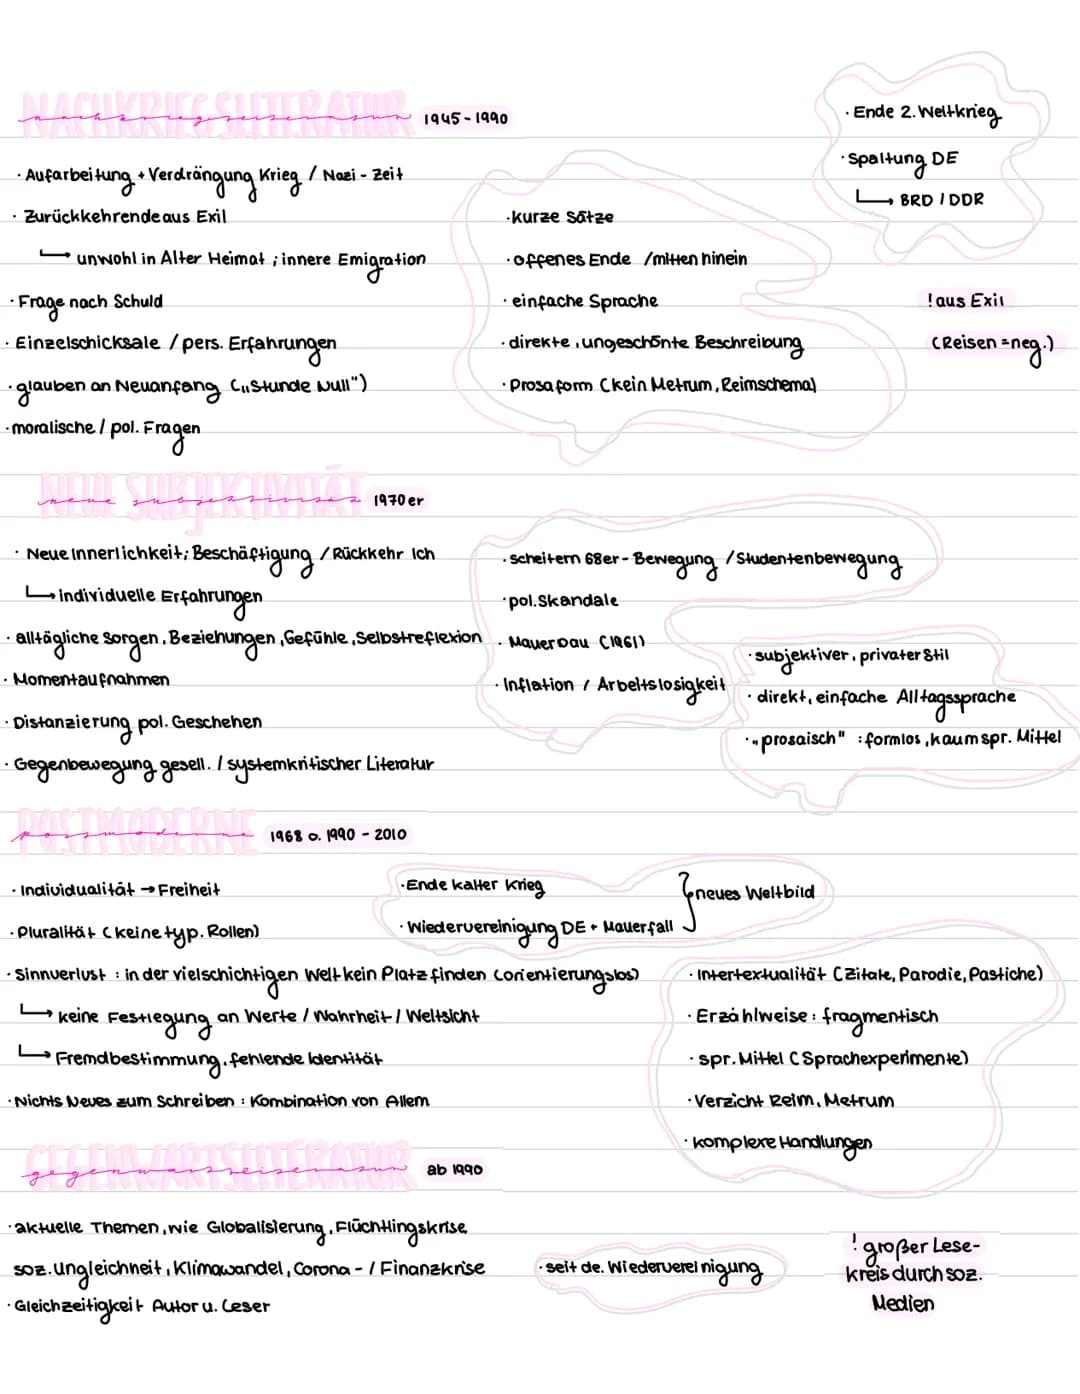 NACHKRIEGSLITERATUR
nachkriegsliteratur 1945-1990
· Aufarbeitung + Verdrängung Krieg / Nazi-Zeit
· Zurückkehrende aus Exil
↳ unwohl in Alter Heimat ; innere Emigration
· Frage nach Schuld
· Einzelschicksale / pers. Erfahrungen
· glauben an Neuanfang („Stunde Null")
· moralische / pol. Fragen
· kurze Sätze
· offenes Ende / mitten hinein
· einfache Sprache
· direkte, ungeschönte Beschreibung
· Prosaform (kein Metrum, Reimschema)
· Ende 2. Weltkrieg
· Spaltung DE
↳ BRD / DDR
! aus Exil
(Reisen = neg.)
NEUE SUBJEKTIVITÄT
neue subjektivität 1970er
· Neue Innerlichkeit; Beschäftigung / Rückkehr Ich
↳ individuelle Erfahrungen
· alltägliche Sorgen, Beziehungen, Gefühle, Selbstreflexion
· Momentaufnahmen
· Distanzierung pol. Geschehen
· Gegenbewegung gesell. / systemkritischer Literatur
· scheitern 68er-Bewegung / Studentenbewegung
· pol. Skandale
· Mauerbau (1961)
· Inflation / Arbeitslosigkeit
· subjektiver, privater Stil
· direkt, einfache Alltagssprache
· „prosaisch" : formlos, kaum spr. Mittel
POSTMODERNE
postmoderne 1968 o. 1990 - 2010
· Individualität → Freiheit
· Pluralität (keine typ. Rollen)
· Sinnverlust : in der vielschichtigen Welt kein Platz finden (orientierungslos)
↳ keine Festlegung an Werte / Wahrheit / Weltsicht
↳ Fremdbestimmung, fehlende Identität
· Nichts Neues zum Schreiben : Kombination von Allem
· Ende kalter Krieg
· Wiedervereinigung DE + Mauerfall
} neues Weltbild
· Intertextualität (Zitate, Parodie, Pastiche)
· Erzählweise : fragmentisch
· spr. Mittel (Sprachexperimente)
· Verzicht Reim, Metrum
· komplexe Handlungen
GEGENWARTSLITERATUR
gegenwartsliteratur ab 1990
· aktuelle Themen, wie Globalisierung, Flüchtlingskrise,
soz. Ungleichheit, Klimawandel, Corona - / Finanzkrise
· Gleichzeitigkeit Autor u. Leser
· seit de. Wiedervereinigung
! großer Lese-
kreis durch soz.
Medien